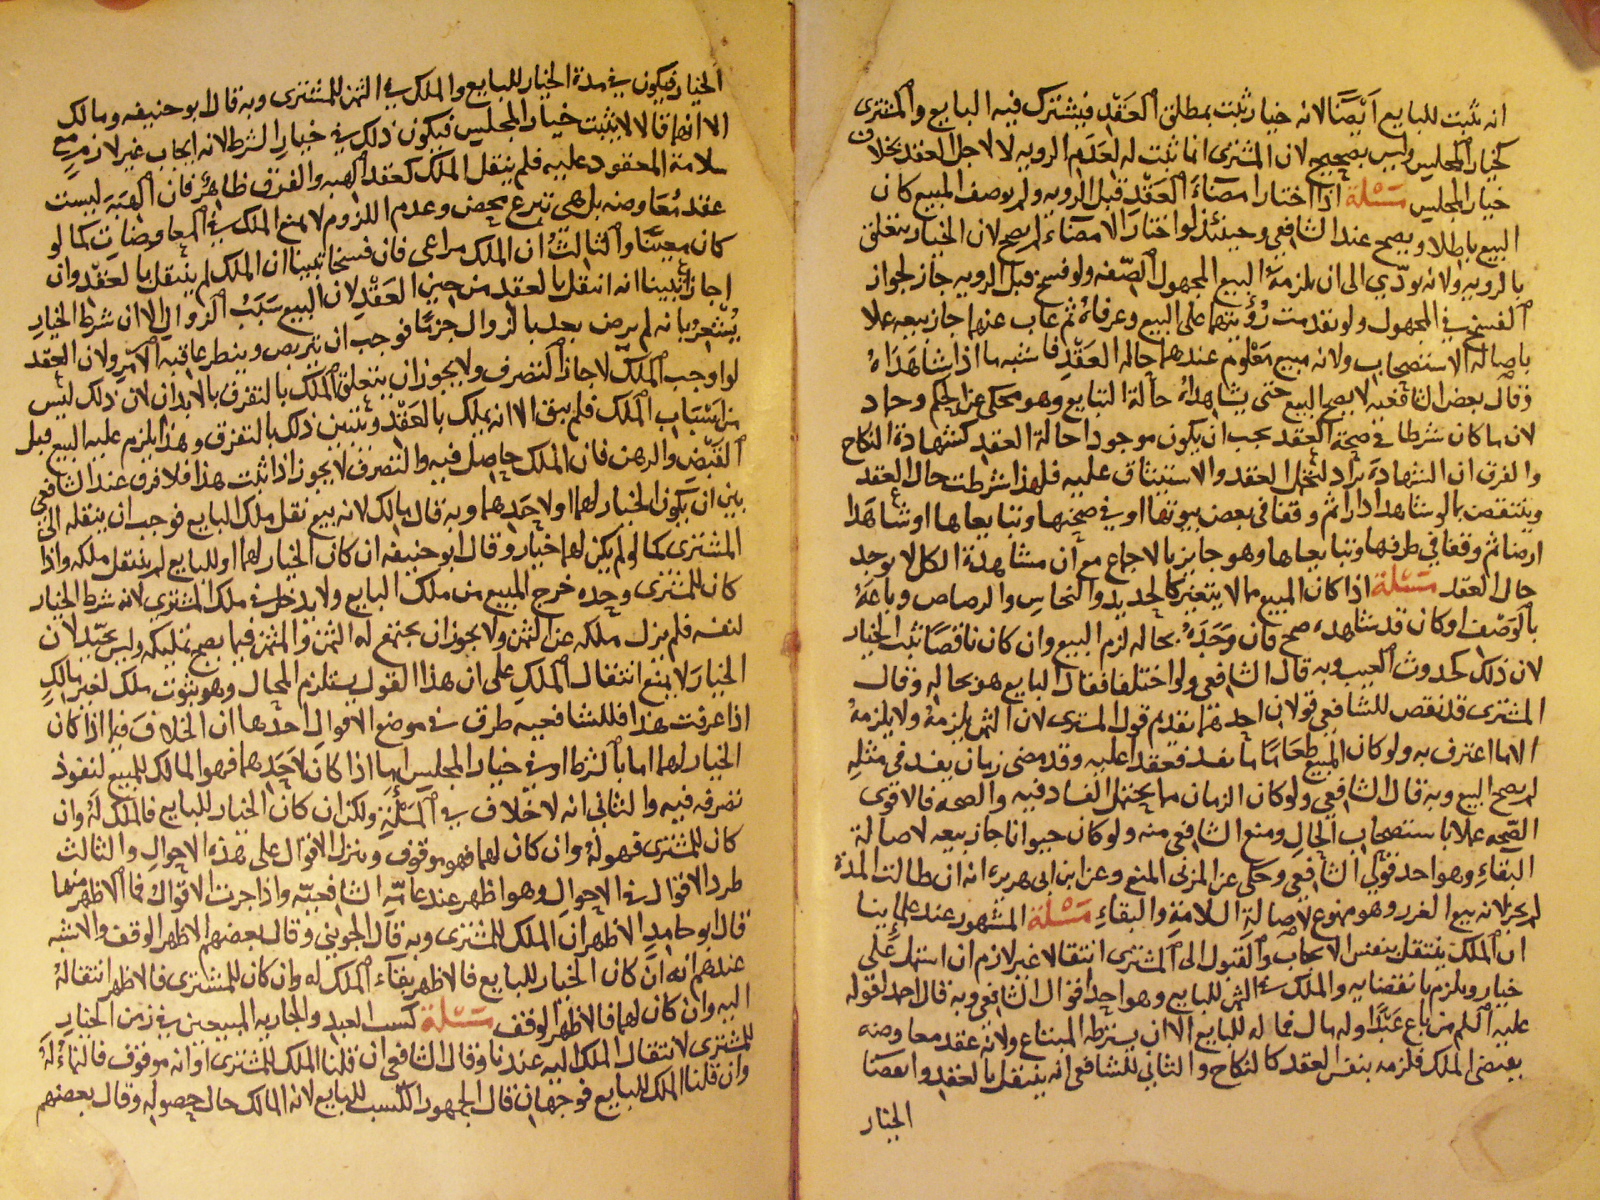 انه ثبت للبايع ايضا لانه خيار ثبت بمطلق العقد فيشترك فيه البايع والمشترى
كخيار المجلس وليس بصحيح لان المشترى انما ثبت له لعدم الرويه لا لاجل العقد بخلاف
خيار المجلس مسئلة اذا اختار امضاء العقد قبل الرويه ولم يوصف المبيع كان
البيع باطلا ويصح عند الشافعي وحينئذ لو اختار الامضاء لم يصح لان الخيار يتعلق
بالرويه ولانه يودي الى ان يلزمه البيع المجهول الصفه ولو فسخ قبل الرويه جاز لجواز
الفسخ في المجهول ولو تقدمت رؤيتهما على البيع وعرفاه ثم غاب عنهما جاز بيعه عملا
باصالة الاستصحاب ولانه مبيع معلوم عندهما حالة العقد فاشبه ما اذا شاهداه
وقال بعض الشافعيه لا يصح البيع حتى يشاهداه حالة التبايع وهو محكي عن الحكم وحماد
لان ما كان شرطا في صحة العقد يجب ان يكون موجودا حالة العقد كشهادة النكاح
والفرق ان الشهادة تراد لتحمل العقد والاستيثاق عليه فلهذا اشترطت حال العقد
وينتقض بما لو شاهدا دارا ثم وقفا في بعض بيوتها او في صحنها وتبايعاها او شاهدا
ارضا ثم وقفا في طرفها وتبايعاها وهو جايز بالاجماع مع ان مشاهدة الكل لا يوجد
حال العقد مسئلة اذا كان المبيع مما لا يتغير كالحديد والنحاس والرصاص وباعه
بالوصف او كان قد شاهده صح فان وجده بحاله لزم البيع وان كان ناقصا ثبت الخيار
لان ذلك كحدوث العيب وبه قال الشافعي ولو اختلفا فقال البايع هو بحاله وقال
المشترى قد نقص للشافعي قولان احدهما تقديم قول المشترى لان الثمن يلزمه ولا يلزمه
الا ما اعترف به ولو كان المبيع طعاما مما يفسد فعقدا عليه وقد مضى زمان يفسد في مثله
لم يصح البيع وبه قال الشافعي ولو كان الزمان مما يحتمل الفساد فيه والصحه فالاقوى
الصحه عملا باستصحاب الحال ومنع الشافعي منه ولو كان حيوانا جاز بيعه لاصالة
البقاء وهو احد قولي الشافعي وحكى عن المزني المنع وعن ابن ابى هريره انه ان طالت المدة
لم يجز لانه بيع الغرر وهو ممنوع لاصالة السلامة والبقاء مسئلة المشهور عند علماينا
ان الملك ينتقل بنفس الايجاب والقبول الى المشترى انتقالا غير لازم ان اشتمل على
خيار ويلزم بانقضايه والملك في الثمن للبايع وهو احد اقوال الشافعي وبه قال احمد لقوله
عليه السلم من باع عبدا وله مال فماله للبايع الا ان يشترطه المبتاع ولانه عقد معاوضه
يقتضى الملك فلزمه بنفس العقد كالنكاح والثاني للشافعي انه ينتقل بالعقد وانقضا
الخيار
الخيار فيكون في مدة الخيار للبايع والملك في الثمن للمشترى وبه قال ابو حنيفه ومالك
الا انهما قالا لا يثبت خيار المجلس فيكون ذلك في خيار الشرط لانه ايجاب غير لازم مع
سلامة المعقود عليه فلم ينتقل الملك كعقد الهبه والفرق ظاهر فان الهبة ليست
عقد معاوضه بل هي تبرع محض وعدم اللزوم لا يمنع الملك في المعاوضات كما لو
كان معيبا والثالث ان الملك مراعى فان فسخا تبينا ان الملك لم ينتقل بالعقد وان
اجازا تبينا انه انتقل بالعقد من حين العقد لان البيع سبب الزوال الا ان شرط الخيار
يشعر بانه لم يرض بعد بالزوال جزما فوجب ان نتربص وينظر عاقبة الامر ولان العقد
لو اوجب الملك لاجاز التصرف ولا يجوز ان يتعلق الملك بالتفرق بالابدان لان ذلك ليس
من اسباب الملك فلم يبق الا انه يملك بالعقد ويتبين ذلك بالتفرق وهذا يلزم عليه البيع قبل
القبض والرهن فان الملك حاصل فيه والتصرف لا يجوز اذا ثبت هذا فلا فرق عند الشافعي
بين ان يكون الخيار لهما او لاحدهما وبه قال مالك لانه بيع نقل ملك البايع فوجب ان ينقله الى
المشترى كما لو لم يكن لهما خيار وقال ابو حنيفه ان كان الخيار لهما او للبايع لم ينتقل ملكه واذا
كان للمشترى وحده خرج المبيع من ملك البايع ولا يدخل في ملك المشترى لانه شرط الخيار
لنفسه فلم يزل ملكه عن الثمن ولا يجوز ان يجتمع له الثمن والمثمن فيما يصح تمليكه وليس بجيد لان
الخيار لا يمنع انتقال الملك على ان هذا القول يستلزم المحال وهو ثبوت ملك لغير مالك
اذا عرفت هذا فللشافعيه طرق في موضع الاقوال احدها ان الخلاف فيما اذا كان
الخيار لهما اما بالشرط او في خيار المجلس اما اذا كان لاحدهما فهو المالك للمبيع لنفوذ
تصرفه فيه والثاني انه لا خلاف في المسئلة ولكن ان كان الخيار للبايع فالملك له وان
كان للمشترى فهو له وان كان لهما فهو موقوف وتنزل الاقوال على هذه الاحوال والثالث
طرد الاقوال في الاحوال وهو اظهر عند عامة الشافعية واذا جرت الاقوال فما الاظهر منها
قال ابو حامد الاظهر ان الملك للمشترى وبه قال الجويني وقال بعضهم الاظهر الوقف والاشبه
عندهم انه ان كان الخيار للبايع فالاظهر بقاء الملك له وان كان للمشترى فالاظهر انتقاله
اليه وان كان لهما فالاظهر الوقف مسئلة كسب العبد والجاريه المبيعين في زمن الخيار
للمشترى لانتقال الملك اليه عندنا وقال الشافعي ان قلنا الملك للمشترى او انه موقوف فالنماء له
وان قلنا الملك للبايع فوجهان قال الجمهور الكسب للبايع لانه المالك حال حصوله وقال بعضهم